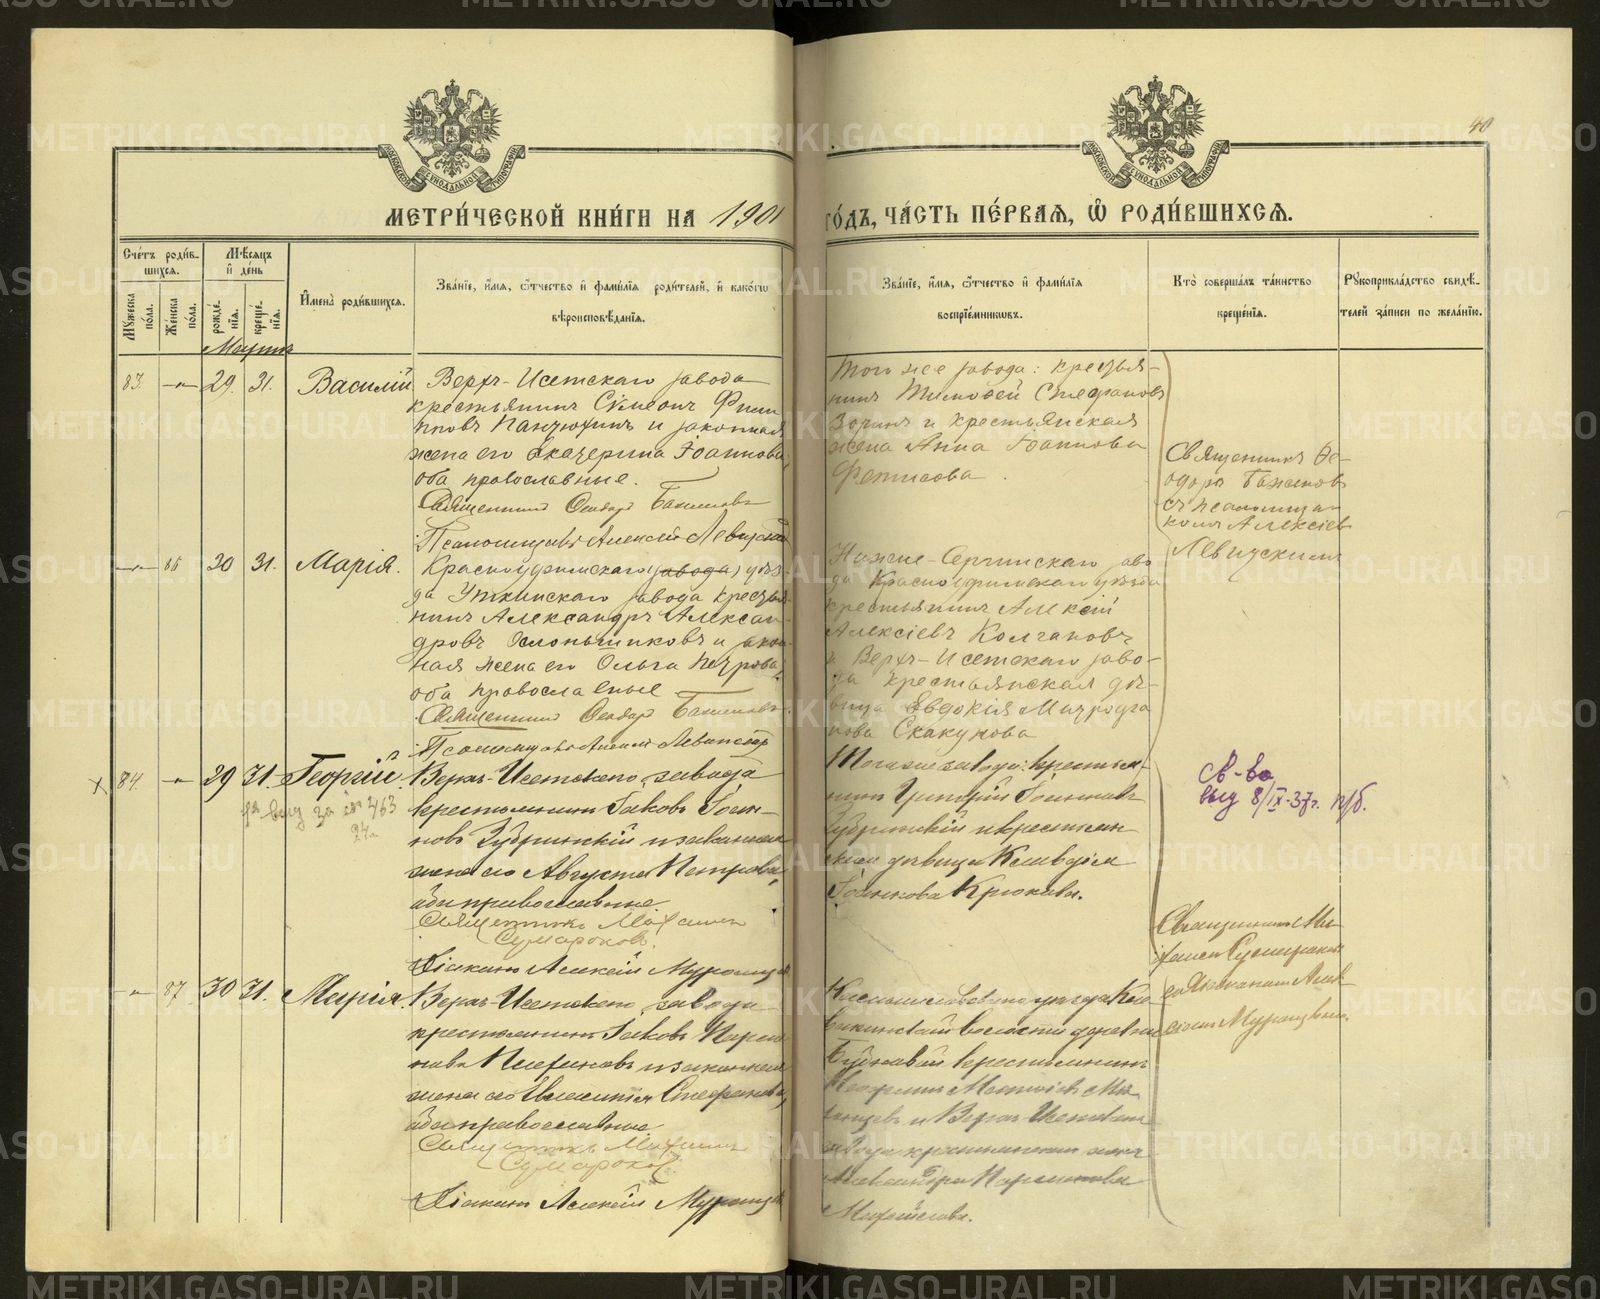 40
МЕТРИ́ЧЕСКОЙ КНИ́ГИ НА 1901 ГО́ДЪ, ЧА́СТЬ ПЕ́РВАЯ, Ѽ РОДИ́ВШИХСЯ.
Сче́тъ роди́в-
шихся.
Мѣ́сяцъ
и҆ де́нь
Мꙋ́жеска по́ла.
Же́нска по́ла.
рожде́-
нїя.
креще́-
нїя.
И҆мена̀ роди́вшихся.
Зва́нїе, и҆́мя, ѻ҆́тчество и҆ фами́лїя роди́телей, и҆ како́гѡ
вѣроисповѣ́данїя.
Зва́нїе, и҆́мя, ѻ҆́тчество и҆ фами́лїя
воспрїе́мникѡвъ.
Кто̀ соверша́лъ та́инство
креще́нїя.
Рꙋкоприкла́дство свидѣ́-
телей за́писи по жела́нїю.
Марта
83 29 31. Василій
Верх-Исетскаго завода
крестьянинъ Сѵмеонъ Филип
повъ Панзюхинъ и законная
жена его Екатерина Іоаннова,
оба православные.
Священникъ Ѳеодоръ Баженовъ
Псаломщикъ Алексій Левитскій
Того же завода: крестья-
нинъ Тимоѳей Стефановъ
Зоринъ и крестьянская
жена Анна Іоаннова
Фетисова.
Священникъ Ѳе-
одоръ Баженовъ
съ псаломщи-
комъ Алексіем
Левитскимъ
86 30 31. Марія.
Красноуфимскаго (завода) уѣз-
да Уткинскаго завода крестья-
нинъ Александръ Алексан-
дровъ Хлопьтиковъ и закон-
ная жена его Ольга Петрова,
оба православные
Священникъ Ѳеодоръ Баженовъ
Псаломщикъ Алексій Левитскій
Нижне-Сергинскаго заво-
да Красноуфимскаго уѣзда
крестьянинъ Алексій
Алексіевъ Колгановъ
и Верх-Исетскаго заво-
да крестьянская дѣ-
вица Евдокія Митрофа
нова Скакунова
84. 29 31. Георгій.
463
Верхъ-Исетскаго завода
крестьянинъ Іаковъ Іоан-
новъ Зубринскій и законная
жена его Августа Петрова,
оба православные.
Священникъ Михаилъ
Сумароковъ.
Діаконъ Алексій Муромцев
Того же завода: крестья-
нинъ Григорій Іоанновъ
Зубринскій и крестьян-
ская дѣвица Клавдія
Іоаннова Крюкова.
Св-во
выд 8/IX-37г.
Священникъ Ми-
хаилъ Сумароковъ
съ Діакономъ Алек-
сіемъ Муромцевым.
87 30 31. Марія.
Верхъ-Исетскаго завода
крестьянинъ Іаковъ
и законная
жена его Стефанова,
оба православные
Священникъ Михаилъ
Сумароковъ.
Діаконъ Алексій Муромцев
уѣзда
волости деревни
крестьянинъ
и Верхъ-Исетскаго
завода крестьянская жена
Александра
METRIKI.GASO-URAL.RU